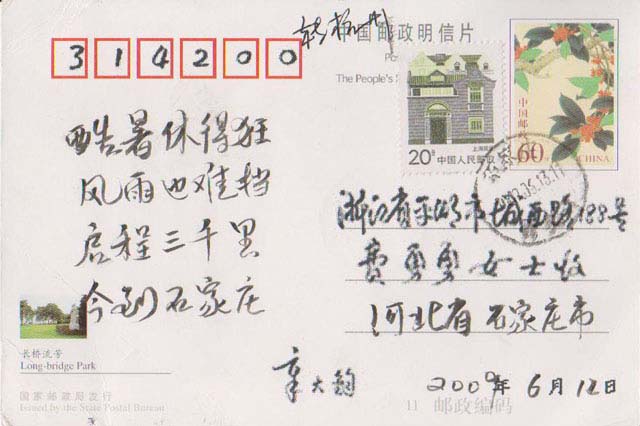 314200
中国邮政明信片
The People's
20分 中国人民邮政
中国邮政
60分
CHINA
酷暑休得狂
风雨也难挡
启程三千里
今到石家庄
浙江省平湖市城西路188号
费勇勇女士收
河北省石家庄市
章大钧
2000年6月12日
长桥流芳
Long-bridge Park
国家邮政局发行
Issued by the State Postal Bureau
11 邮政编码